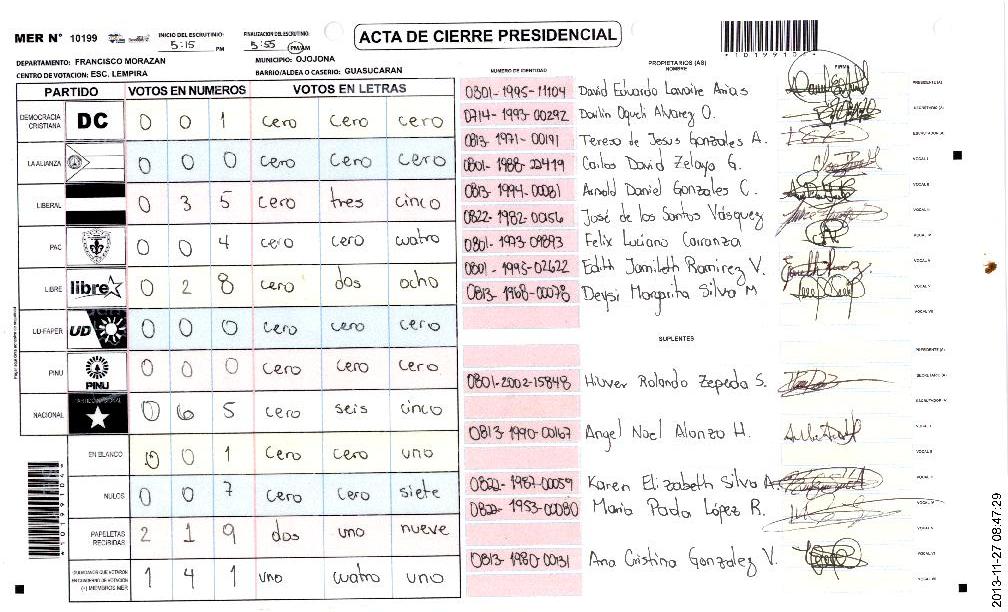 MER N° 10199 INICIO DEL ESCRUTINIO: 5:15 PM FINALIZACION DEL ESCRUTINIO: 5:55 PM/AM ACTA DE CIERRE PRESIDENCIAL
*1019910*
DEPARTAMENTO: FRANCISCO MORAZAN MUNICIPIO: OJOJONA
CENTRO DE VOTACION: ESC. LEMPIRA BARRIO/ALDEA O CASERIO: GUASUCARAN
PARTIDO VOTOS EN NUMEROS VOTOS EN LETRAS
DEMOCRACIA CRISTIANA DC 0 0 1 cero cero cero
LA ALIANZA 0 0 0 cero cero cero
LIBERAL 0 3 5 cero tres cinco
PAC 0 0 4 cero cero cuatro
LIBRE libre 0 2 8 cero dos ocho
UD-FAPER UD 0 0 0 cero cero cero
PINU PINU 0 0 0 cero cero cero
NACIONAL 0 6 5 cero seis cinco
EN BLANCO 0 0 1 cero cero uno
NULOS 0 0 7 cero cero siete
PAPELETAS RECIBIDAS 2 1 9 dos uno nueve
CIUDADANOS QUE VOTARON EN CUADERNO DE VOTACION (+) MIEMBROS MER 1 4 1 uno cuatro uno
NUMERO DE IDENTIDAD PROPIETARIOS (AS) NOMBRE FIRMA
0801-1995-11104 David Eduardo Lavaire Arias PRESIDENTE (A)
0714-1993-00292 Darlin Oqueli Alvarez O. SECRETARIO (A)
0813-1971-00191 Tereza de Jesus Gonzales A. ESCRUTADOR (A)
0801-1988-22419 Carlos David Zelaya G. VOCAL I
0813-1994-00081 Arnold Daniel Gonzales C. VOCAL II
0822-1982-00156 José de los Santos Vásquez VOCAL III
0801-1973-09893 Felix Luciano Carranza VOCAL IV
0801-1995-02622 Edith Jamileth Ramirez V. VOCAL V
0813-1968-00078 Deysi Margarita Silva M
VOCAL VII
SUPLENTES
PRESIDENTE (A)
0801-2002-15848 Hilver Rolando Zepeda S. SECRETARIO (A)
ESCRUTADOR (A)
0813-1990-00167 Angel Noel Alonzo H. VOCAL I
VOCAL II
0822-1987-00059 Karen Elizabeth Silva A.
0822-1953-00080 Maria Paola López R. VOCAL IV
VOCAL V
0813-1980-00131 Ana Cristina Gonzalez V. VOCAL VI
VOCAL VII
2013-11-27 08:47:29